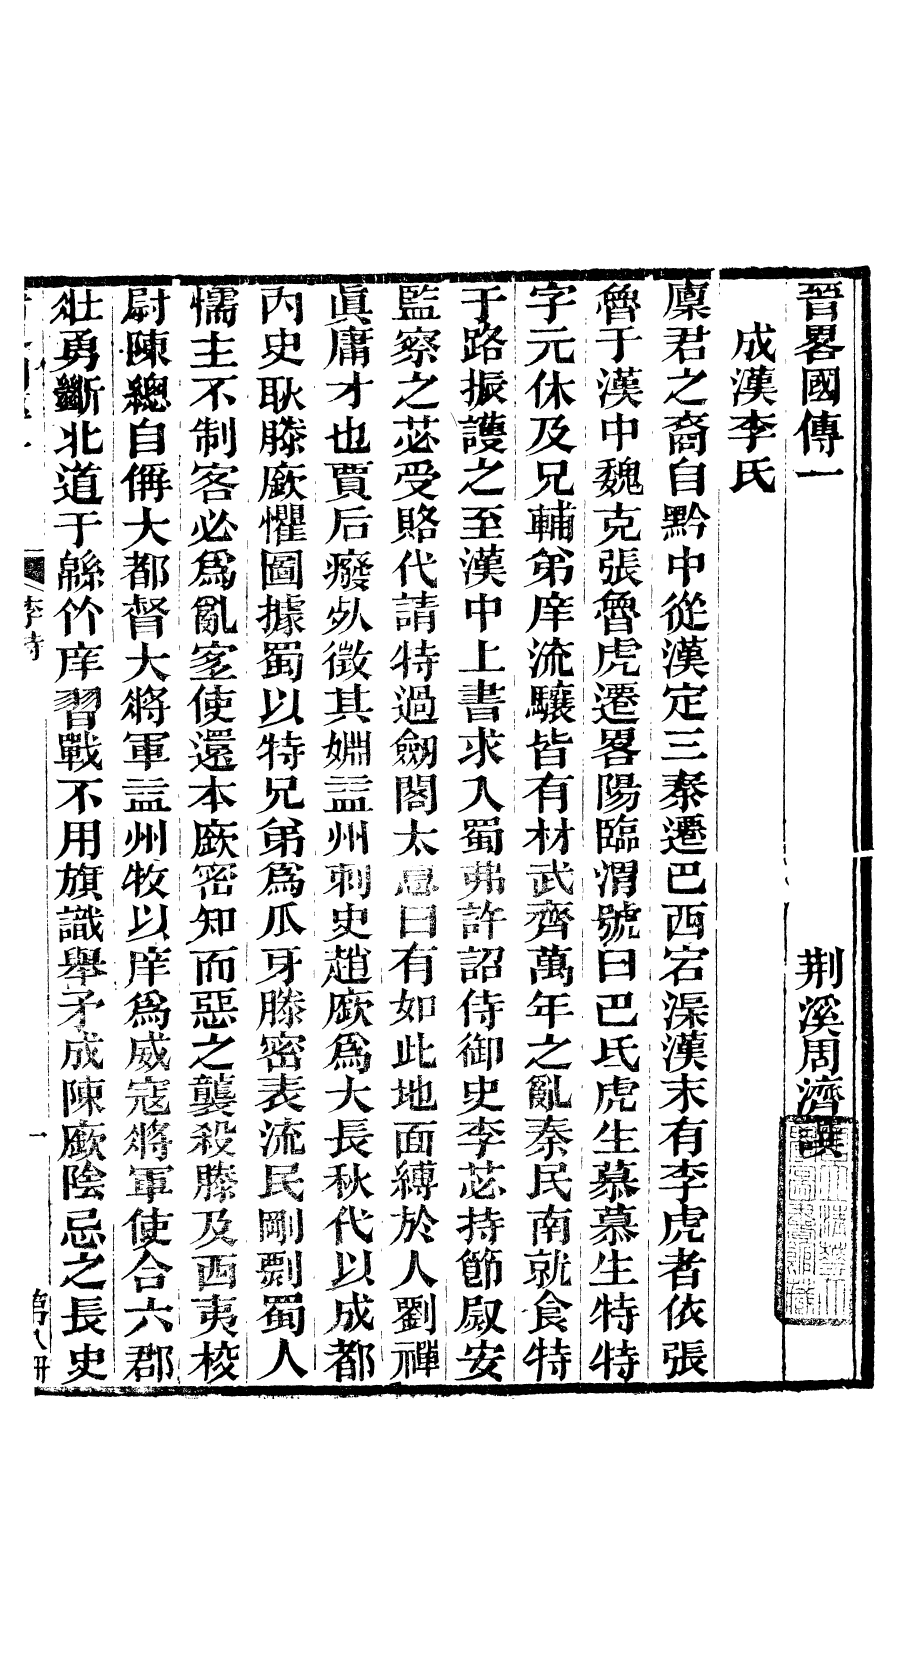 晉畧國傳一
荆溪周濟譔
成漢李氏
廩君之裔自黔中從漢定三秦遷巴西宕渠漢末有李虎者依張
魯于漢中魏克張魯虎遷畧陽臨渭號曰巴氐虎生慕慕生特特
字元休及兄輔弟庠流驤皆有材武齊萬年之亂秦民南就食特
于路振護之至漢中上書求入蜀弗許詔侍御史李苾持節尉安
監察之苾受賂代請特過劒閣太息曰有如此地面縛於人劉禪
眞庸才也賈后廢死徵其婣益州刺史趙廞爲大長秋代以成都
內史耿滕廞懼圖據蜀以特兄弟爲爪牙滕密表流民剛剽蜀人
懦主不制客必爲亂宐使還本廞密知而惡之襲殺滕及西夷校
尉陳總自偁大都督大將軍益州牧以庠爲威寇將軍使合六郡
壯勇斷北道于緜竹庠習戰不用旗識舉矛成陳廞陰忌之長史
李特
一
第八冊